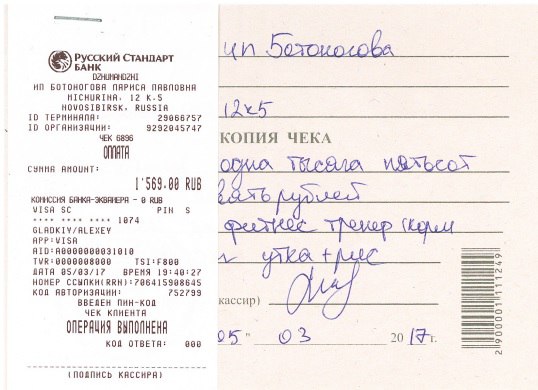 Русский Стандарт
БАНК
DZHUMANDZHI
ИП БОТОНОГОВА ЛАРИСА ПАВЛОВНА
MICHURINA, 12 K.5
NOVOSIBIRSK, RUSSIA
ID ТЕРМИНАЛА: 29066757
ID ОРГАНИЗАЦИИ: 9292045747
ЧЕК 6896
ОПЛАТА
СУММА AMOUNT:
1'569.00 RUB
КОМИССИЯ БАНКА-ЭКВАЙЕРА - 0 RUB
VISA SC PIN S
**** **** **** 1074
GLADKIY/ALEXEY
APP:VISA
AID:A0000000031010
TVR:0000008000 TSI:F800
ДАТА 05/03/17 ВРЕМЯ 19:40:27
НОМЕР ССЫЛКИ(RRN):706415908645
КОД АВТОРИЗАЦИИ: 752799
ВВЕДЕН ПИН-КОД
ЧЕК КЛИЕНТА
ОПЕРАЦИЯ ВЫПОЛНЕНА
КОД ОТВЕТА: 000
(ПОДПИСЬ КАССИРА)
ип Ботоногова
12к5
КОПИЯ ЧЕКА
одна тысяча пятьсот
рублей
фитнес тренер (корм
утка+рис
кассир)
05" 03 2017г.
2900001111249